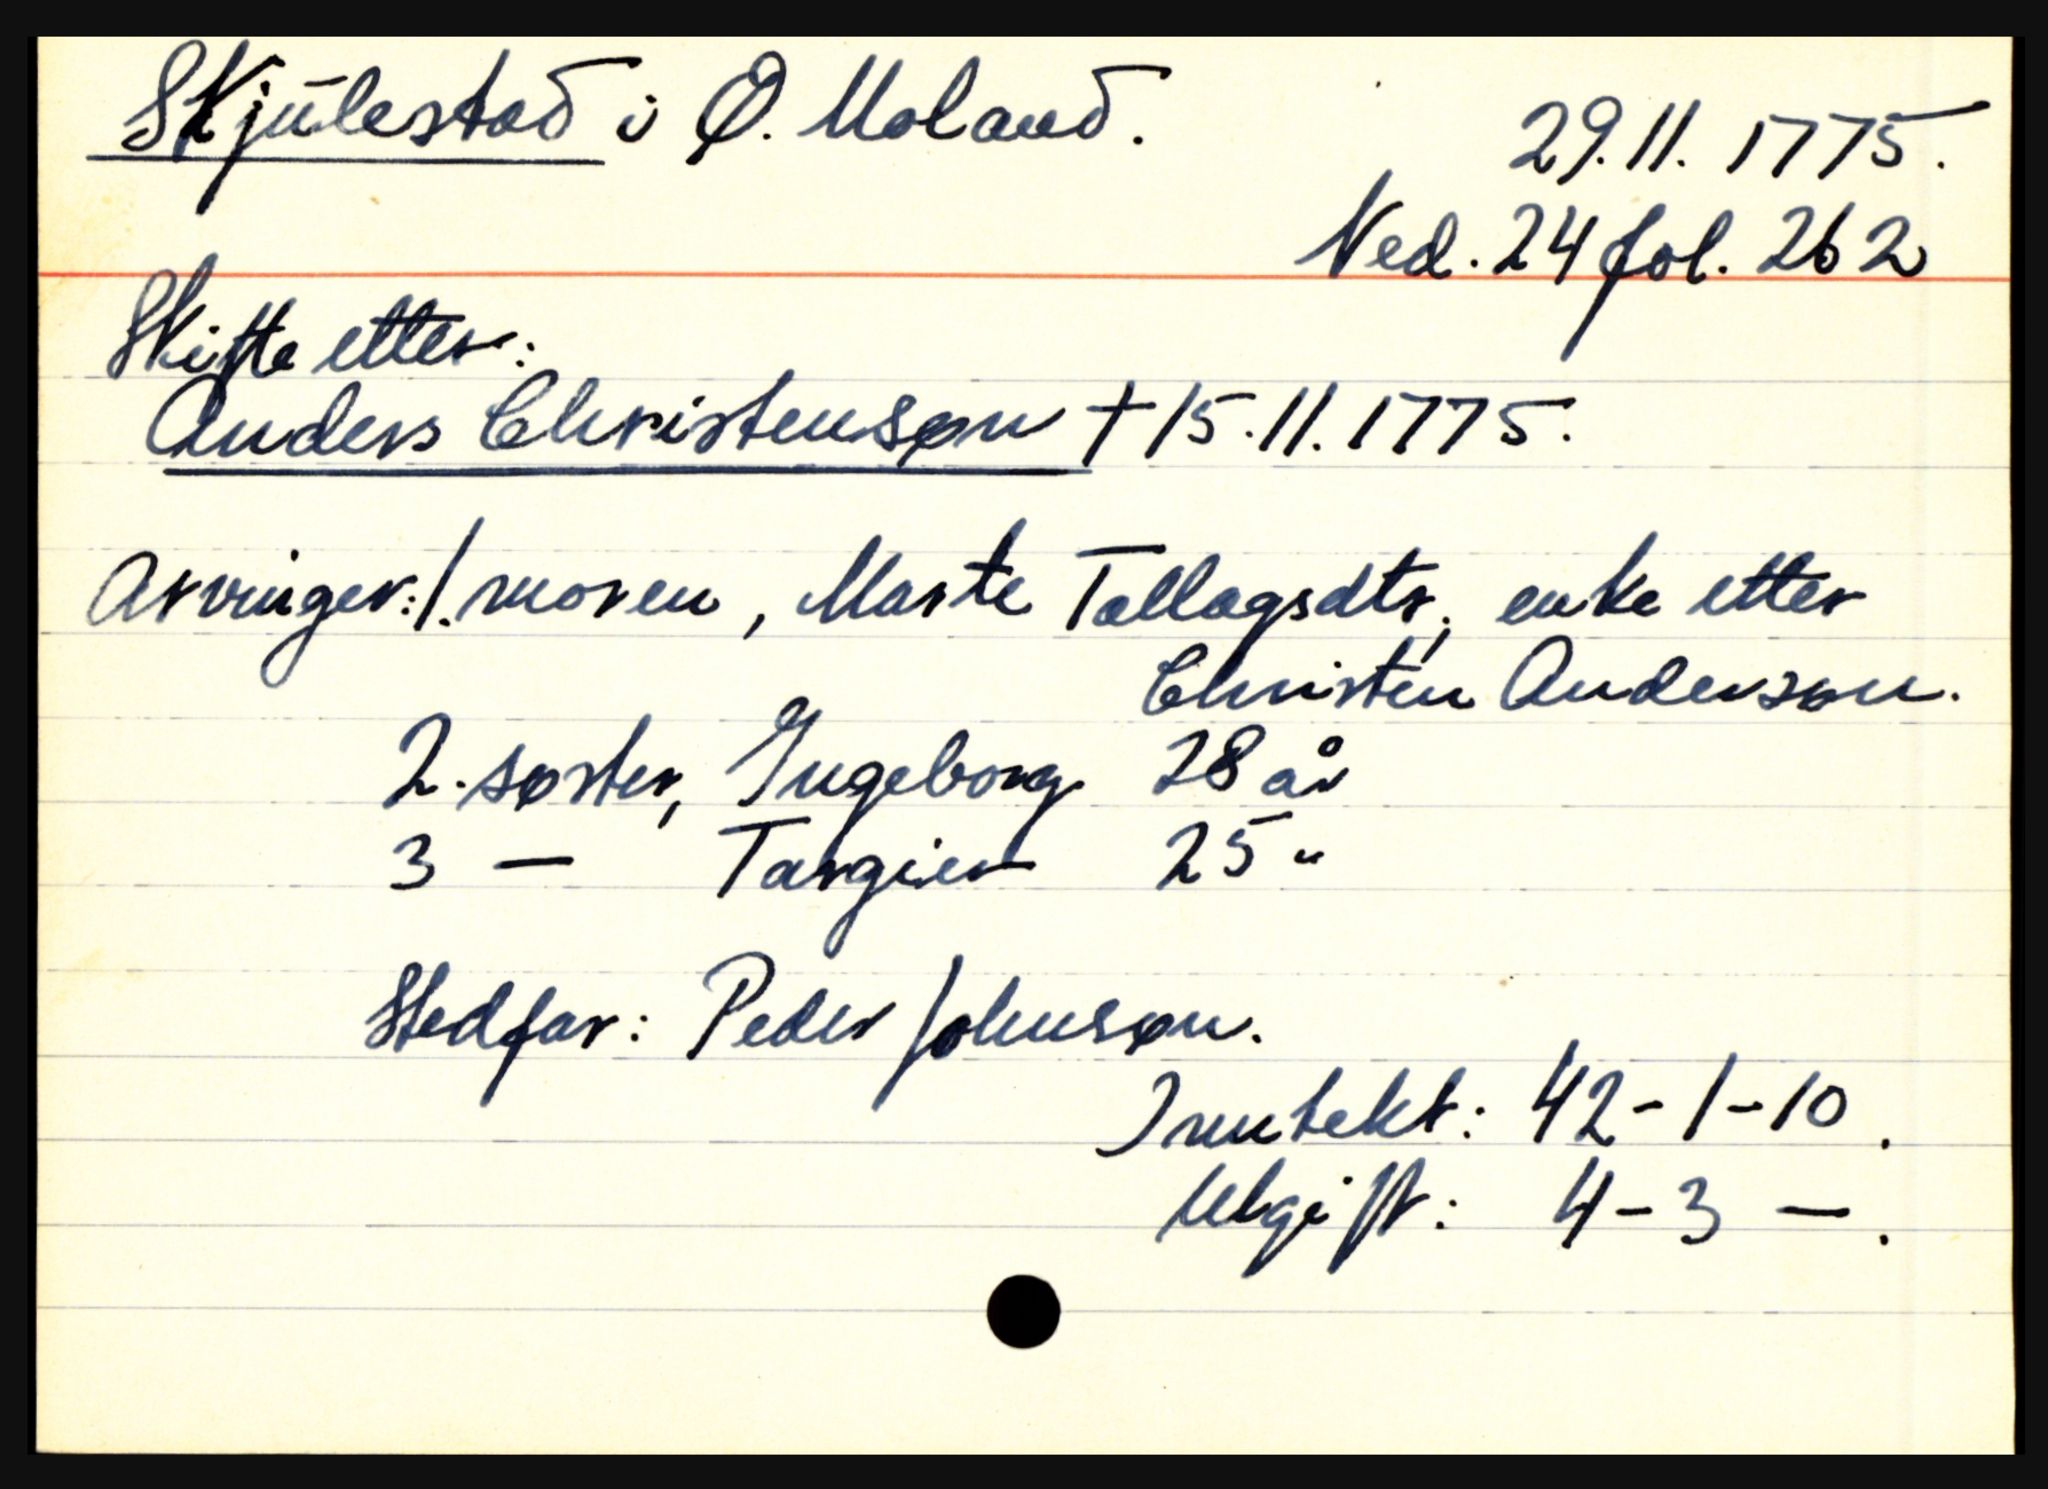 Skjulestad i Ø. Moland.
29.11.1775.
Ned. 24 fol. 262
Skifte etter:
Anders Christensøn † 15.11.1775.
Arvinger: 1. moren, Marte Tallagsdtr., enke etter
Christen Andersøn.
2. søster, Ingeborg 28 år
3 — Targier 25 "
Stedfar: Peder Johnsøn.
Inntekt: 42-1-10.
Utgift: 4-3 —.